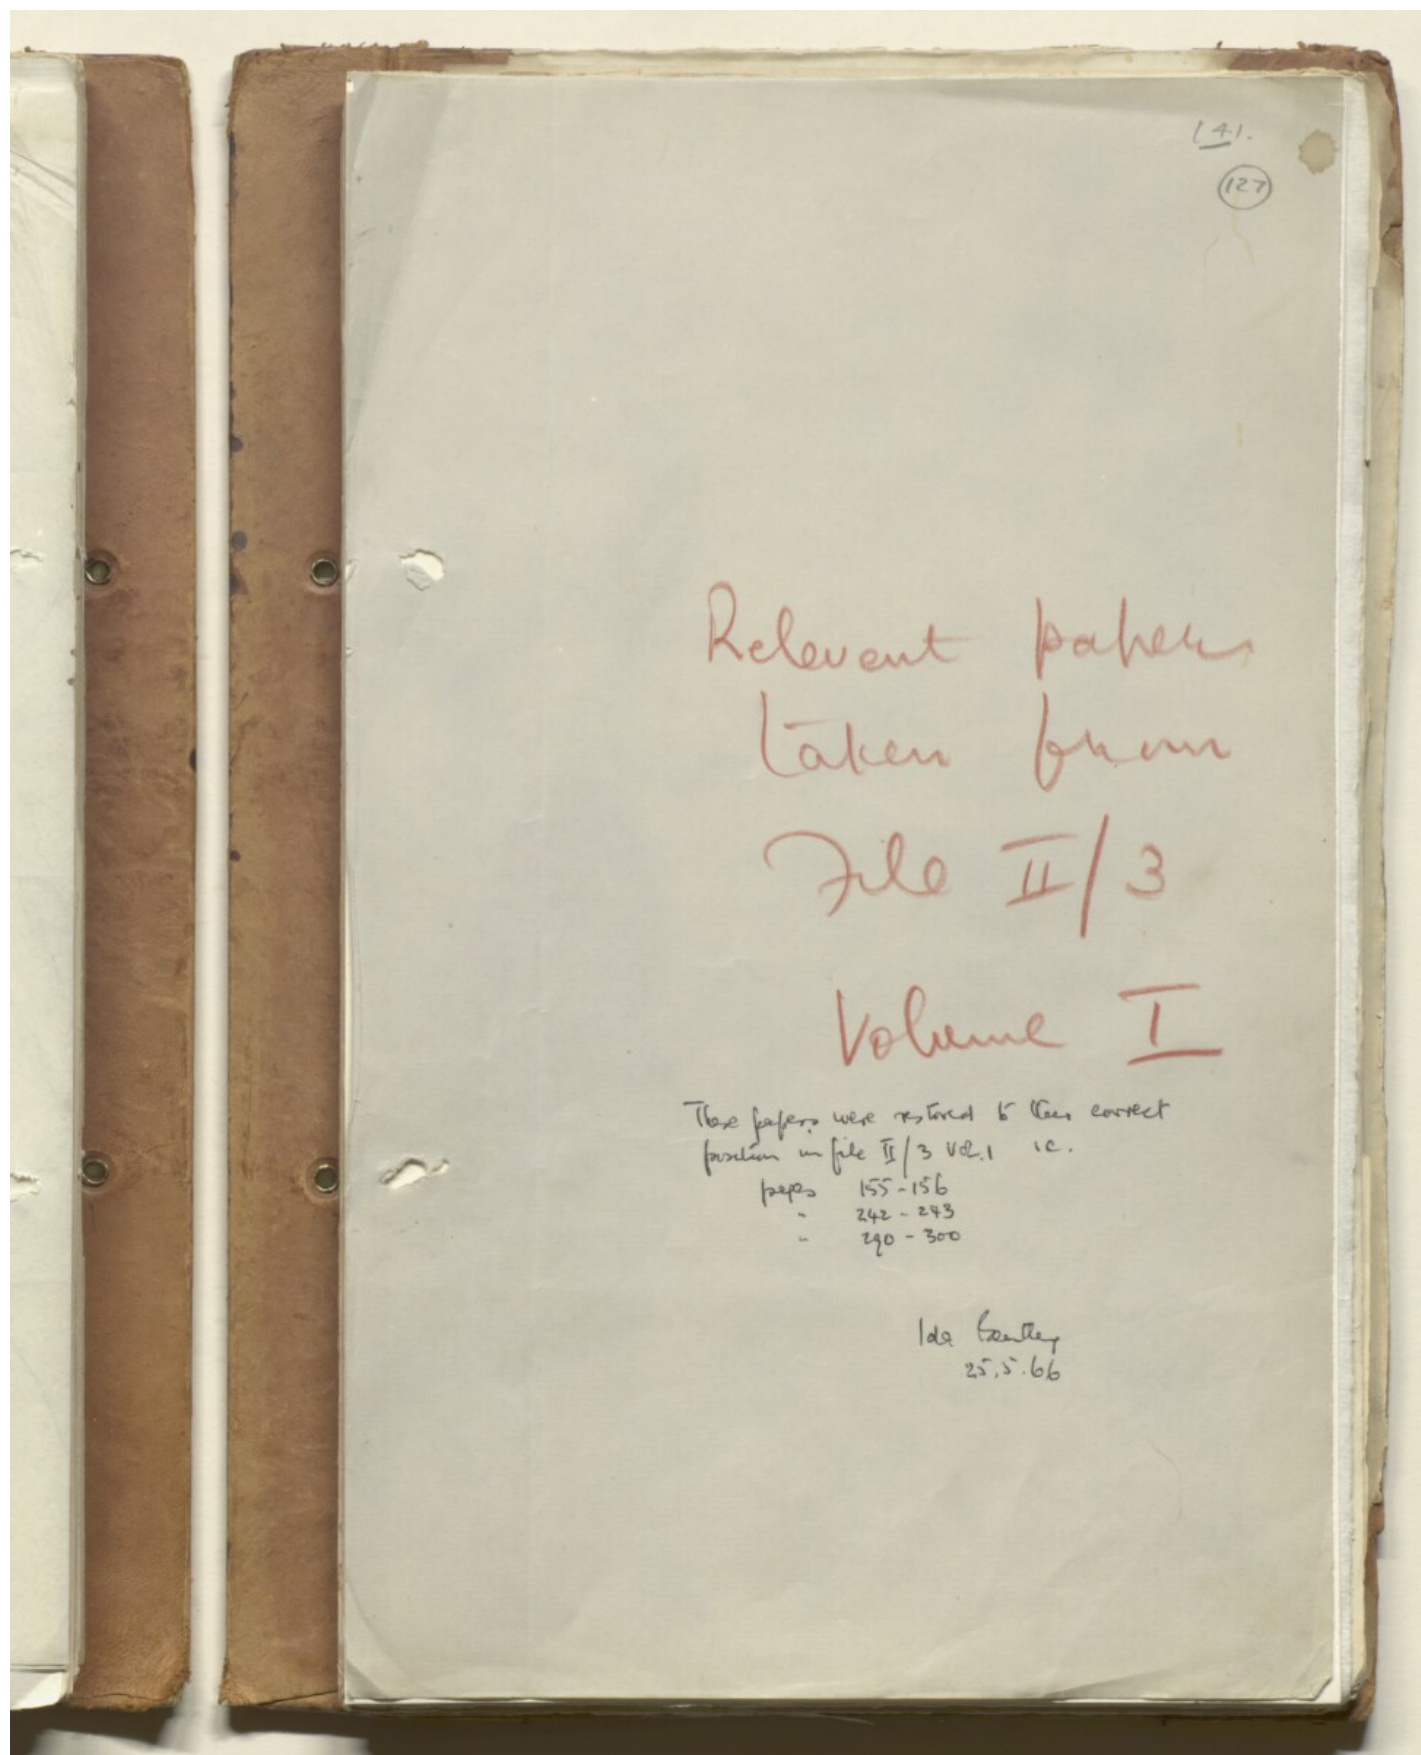 141.
127
Relevant papers
taken from
File II/3
Volume I
These papers were restored to their correct
position in file II/3 Vol.1 i.e.
pages 155-156
" 242 - 243
" 290 - 300
Ida
25.5.66